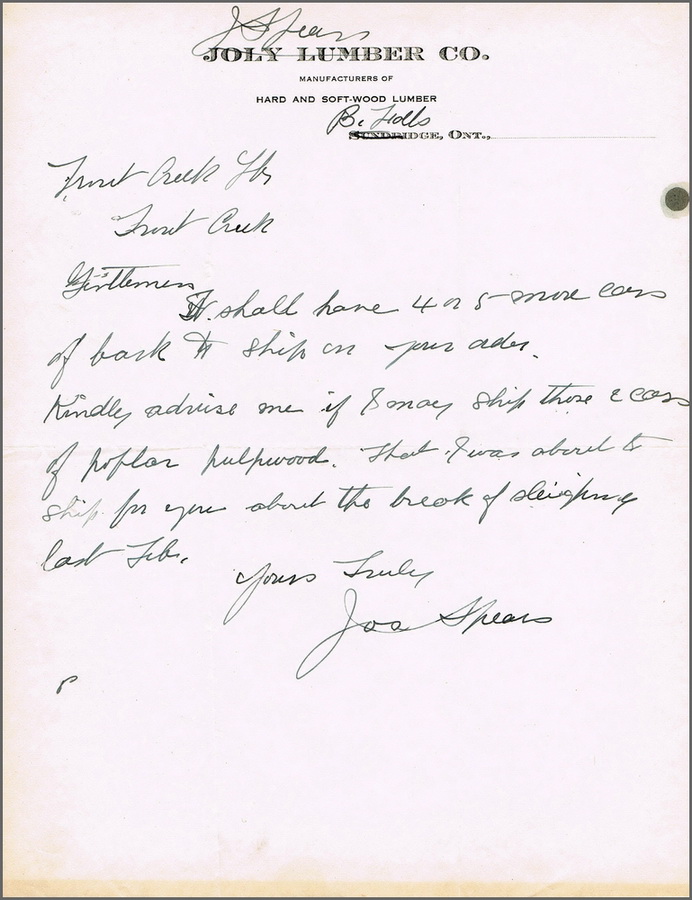 J Spears
JOLY LUMBER CO.
MANUFACTURERS OF
HARD AND SOFT-WOOD LUMBER
B. Falls
SUNDRIDGE, ONT.,
Trout Creek
Trout Creek
Gentlemen
shall have 4 or 5 more cars
of bark to ship on your order.
Kindly advise me if I may ship those 2 cars
of poplar pulpwood. That I was about to
ship for you about the break of sleighing
last Feb.
Yours Truly
Jos Spears